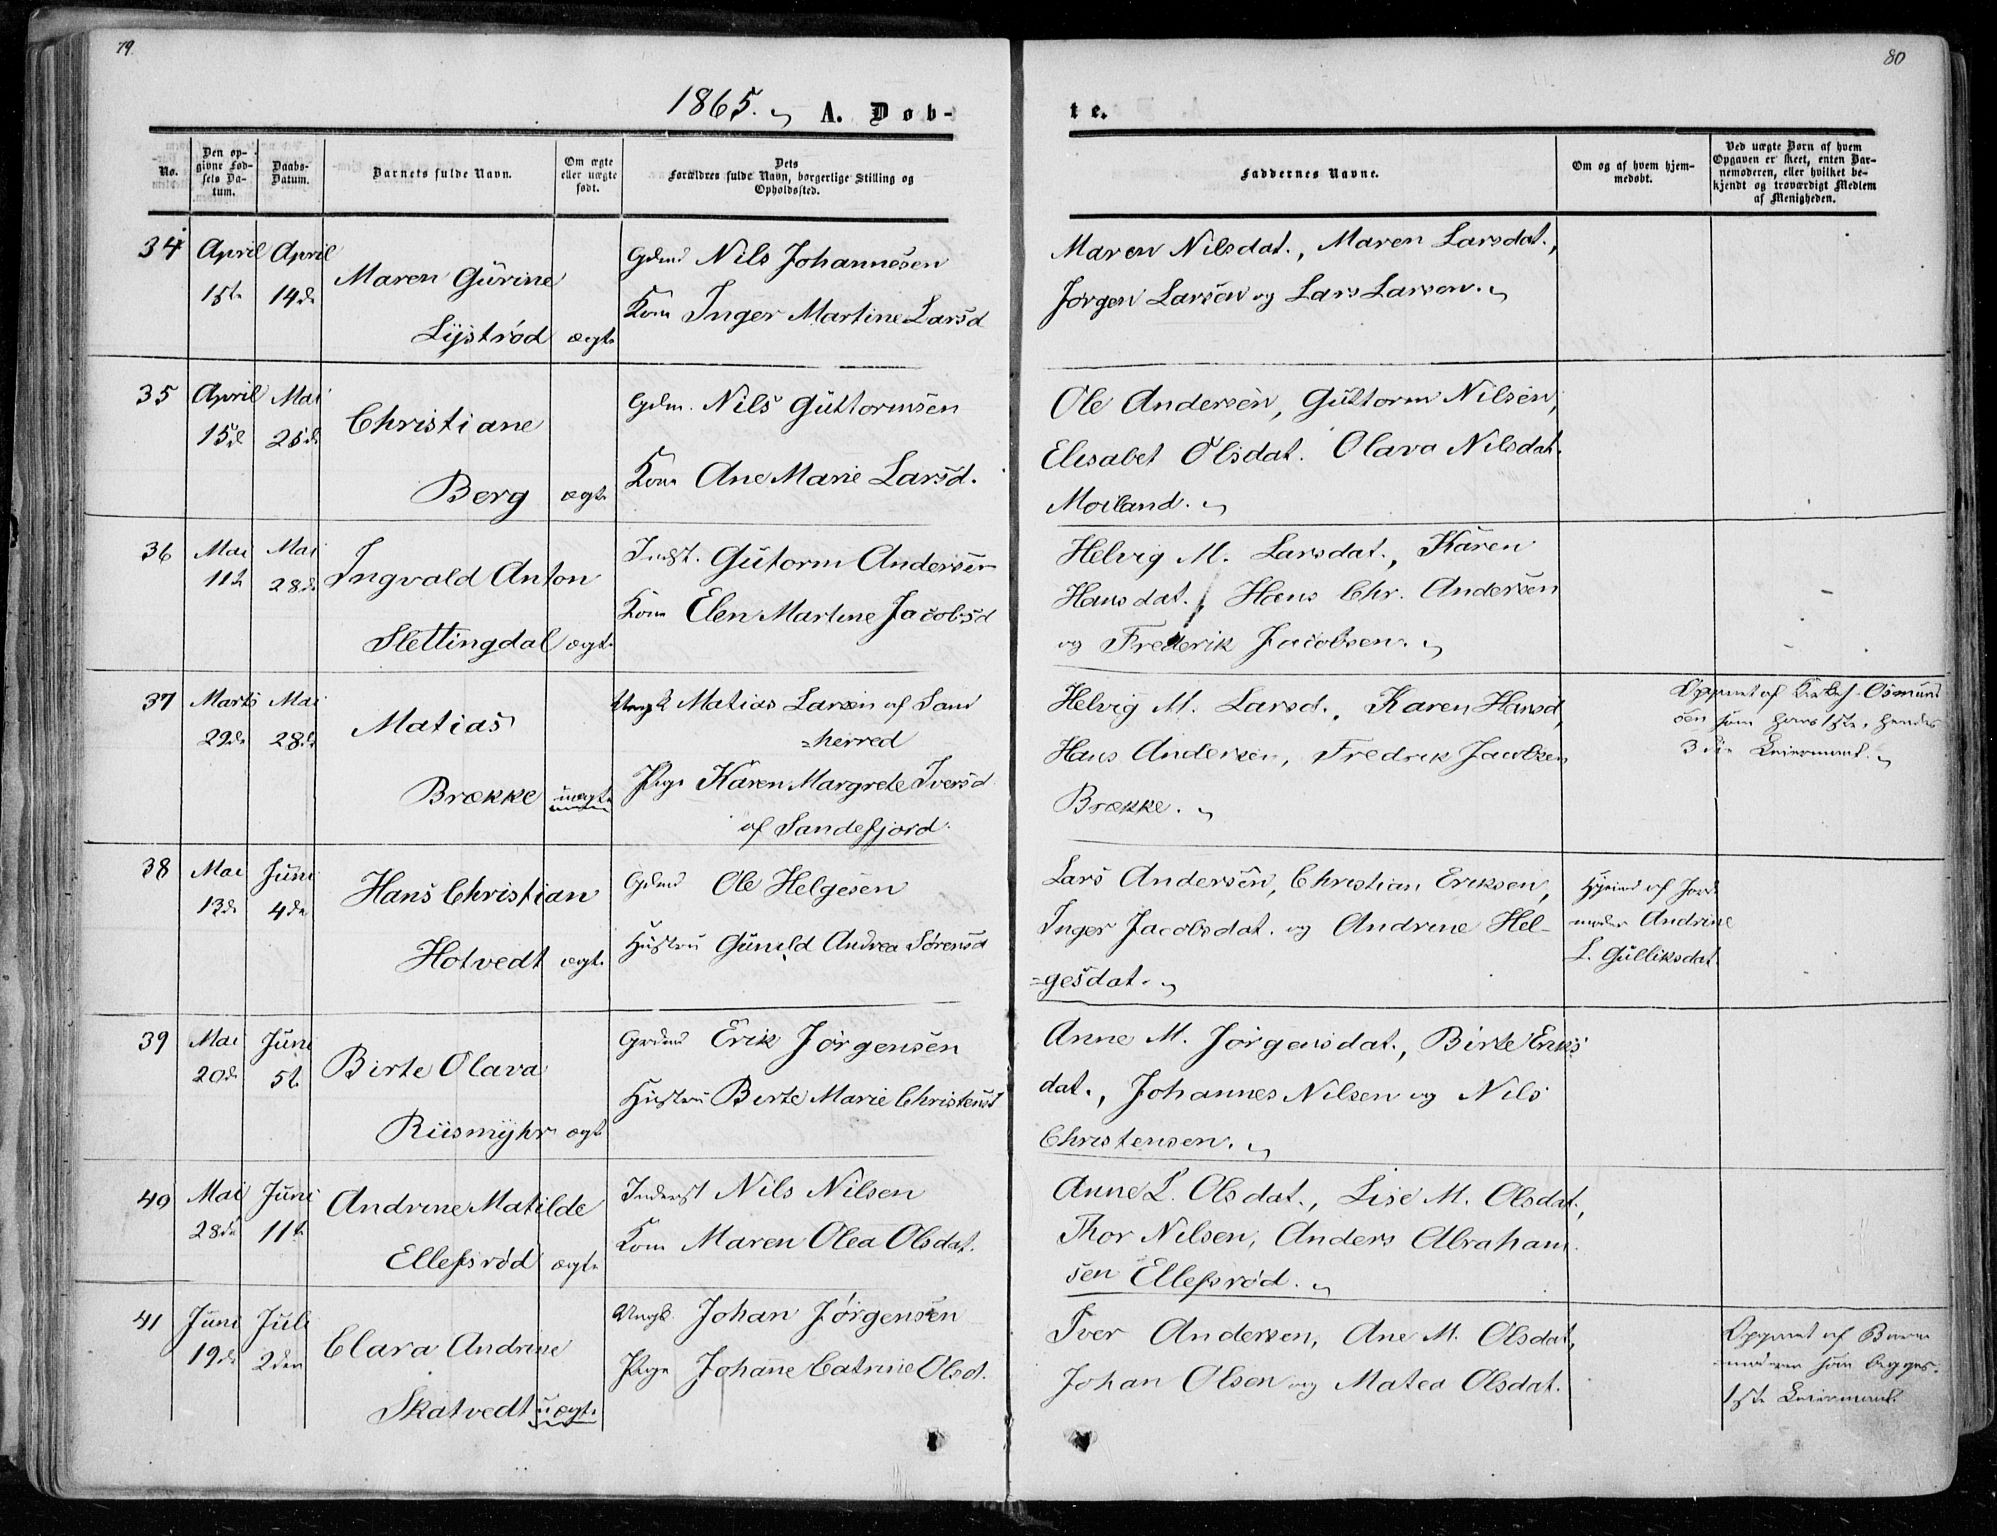 79.
80
1865. A. Døb-
te.
No.
Den op-
givne Fød-
sels Da-
tum.
Daabs-
Datum.
Barnets fulde Navn.
Om ægte
eller uægte
født.
Dets
Forældres fulde Navn, borgerlige Stilling og
Opholdssted.
Faddernes Navne.
Om og af hvem hjem-
medøbt.
Ved uægte Børn af hvem
Opgaven er skeet, enten Bar-
nemoderen, eller hvilket be-
kjendt og troværdigt Medlem
af Menigheden.
34 April April
15te 14de
Maren Gurine
Lystrød ægte
Gdmd Nils Johannesen
Kone Inger Martine Larsd
Maren Nilsdat., Maren Larsdat.,
Jørgen Larsen og Lars Larsen.
35 April Mai
15de 25de
Christiane
Berg ægte
Gdm. Nils Guttormsen
Kone Ane Marie Larsd.
Ole Andersen, Guttorm Nilsen,
Elisabet Olsdat. Olava Nilsdat.
Moiland.
36 Mai Mai
11te 28de
Ingvald Anton
Slettingdal ægte
Indst. Gutorm Andersen
Kone Elen Martine Jacobsd
Helvig M. Larsdat., Karen
Hansdat., Hans Chr. Andersen
og Frederik Jacobsen.
37 Marts Mai
29de 28de
Matias
Brække uægte
Ungk Matias Larsen af Sand
=herred
Pige Karen Margrete Iversd
af Sandefjord.
Helvig M. Larsd., Karen Hansd,
Hans Andersen, Fredrik Jacobsen
Brække.
Opgivet af Kirkes. Osmund
sen som hans 1ste, hendes
3die Leiermaal.
38 Mai Juni
13de 4de
Hans Christian
Hotvedt ægte
Gdmd Ole Helgesen
Hustru Gunild Andrea Sørensd
Lars Andersen, Christian Eriksen,
Inger Jacobsdat. og Andrine Hel-
=gesdat.
Hjemd af Jord
moder Andrine
L. Gulliksdat.
39 Mai Juni
20de 5te
Birte Olava
Riismyhr ægte
Grdmd Erik Jørgensen
Hustru Birte Marie Christensd
Anne M. Jørgensdat., Birte Eriks
dat., Johannes Nilsen og Nils
Christensen.
40 Mai Juni
28de 11te
Andrine Matilde
Ellefsrød ægte
Inderst Nils Nilsen
Kone Maren Olea Olsdat.
Anne L. Olsdat., Lise M. Olsdat.,
Thor Nilsen, Anders Abraham
sen Ellefsrød.
41 Juni Juli
19de 2den
Clara Andrine
Skatvedt uægte
Ungk. Johan Jørgensen
Pige Johanne Catrine Olsd.
Iver Andersen, Ane M. Olsdat,
Johan Olsen og Matea Olsdat.
Opgivet af Barne
moderen som begges
1ste Leiermaal.